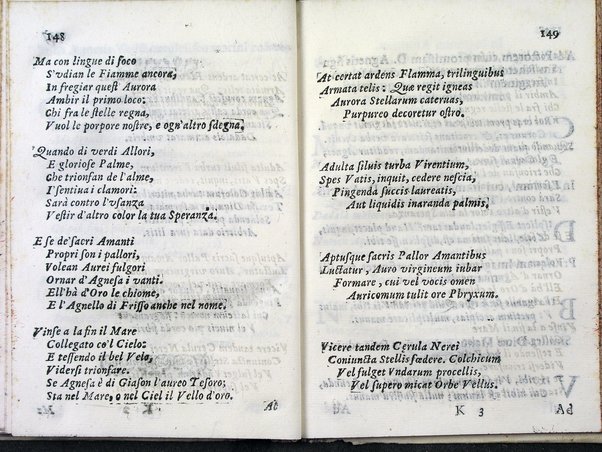 148
Ma con lingue di foco
S'vdian le Fiamme ancora,
In fregiar quest Aurora
Ambir il primo loco:
Chi fra le stelle regna,
Vuol le porpore nostre, e ogn'altro sdegna.
Quando di verdi Allori,
E gloriose Palme,
Che trionfan de l'alme,
I sentiua i clamori:
Sarà contro l'vsanza
Vestir d'altro color la tua Speranza.
E se de' sacri Amanti
Propri son i pallori,
Volean Aurei fulgori
Ornar d'Agnesa i vanti.
Ell'hà d'Oro le chiome,
E l'Agnello di Frisso anche nel nome.
Vinse a la fin il Mare
Collegato co'l Cielo:
E tessendo il bel Velo,
Vidersi trionfare.
Se Agnesa è di Giason l'aureo Tesoro;
Sta nel Mare, o nel Ciel il Vello d'oro.
K 3 At
149
At certat ardens Flamma, trilinguibus
Armata telis: Quæ regit igneas
Aurora Stellarum cateruas,
Purpureo decoretur ostro.
Adulta siluis turba Virentium,
Spes Vatis, inquit, cedere nescia,
Pingenda succis laureatis,
Aut liquidis inaranda palmis.
Aptusque sacris Pallor Amantibus
Luctatur, Auro virgineum iubar
Formare, cui vel vocis omen
Auricomum tulit ore Phryxum.
Vicere tandem Cerula Nerei
Coniuncta Stellis fœdere. Colchicum
Vel fulget Vndarum procellis,
Vel supero micat Orbe Vellus.
K 3 Ad